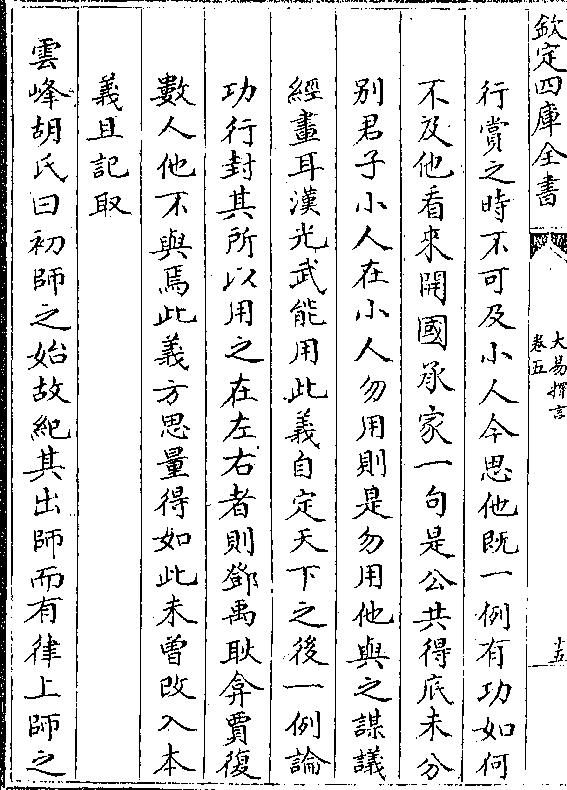 欽定四庫全書
大易擇言
卷五
十五
行賞之時不可及小人今思他既一例有功如何
不及他看來開國承家一句是公共得底未分
别君子小人在小人勿用則是勿用他與之謀議
經畫耳漢光武能用此義自定天下之後一例論
功行封其所以用之在左右者則鄧禹耿弇賈復
數人他不與焉此義方思量得如此未曾改入本
義且記取
雲峰胡氏曰初師之始故紀其出師而有律上師之